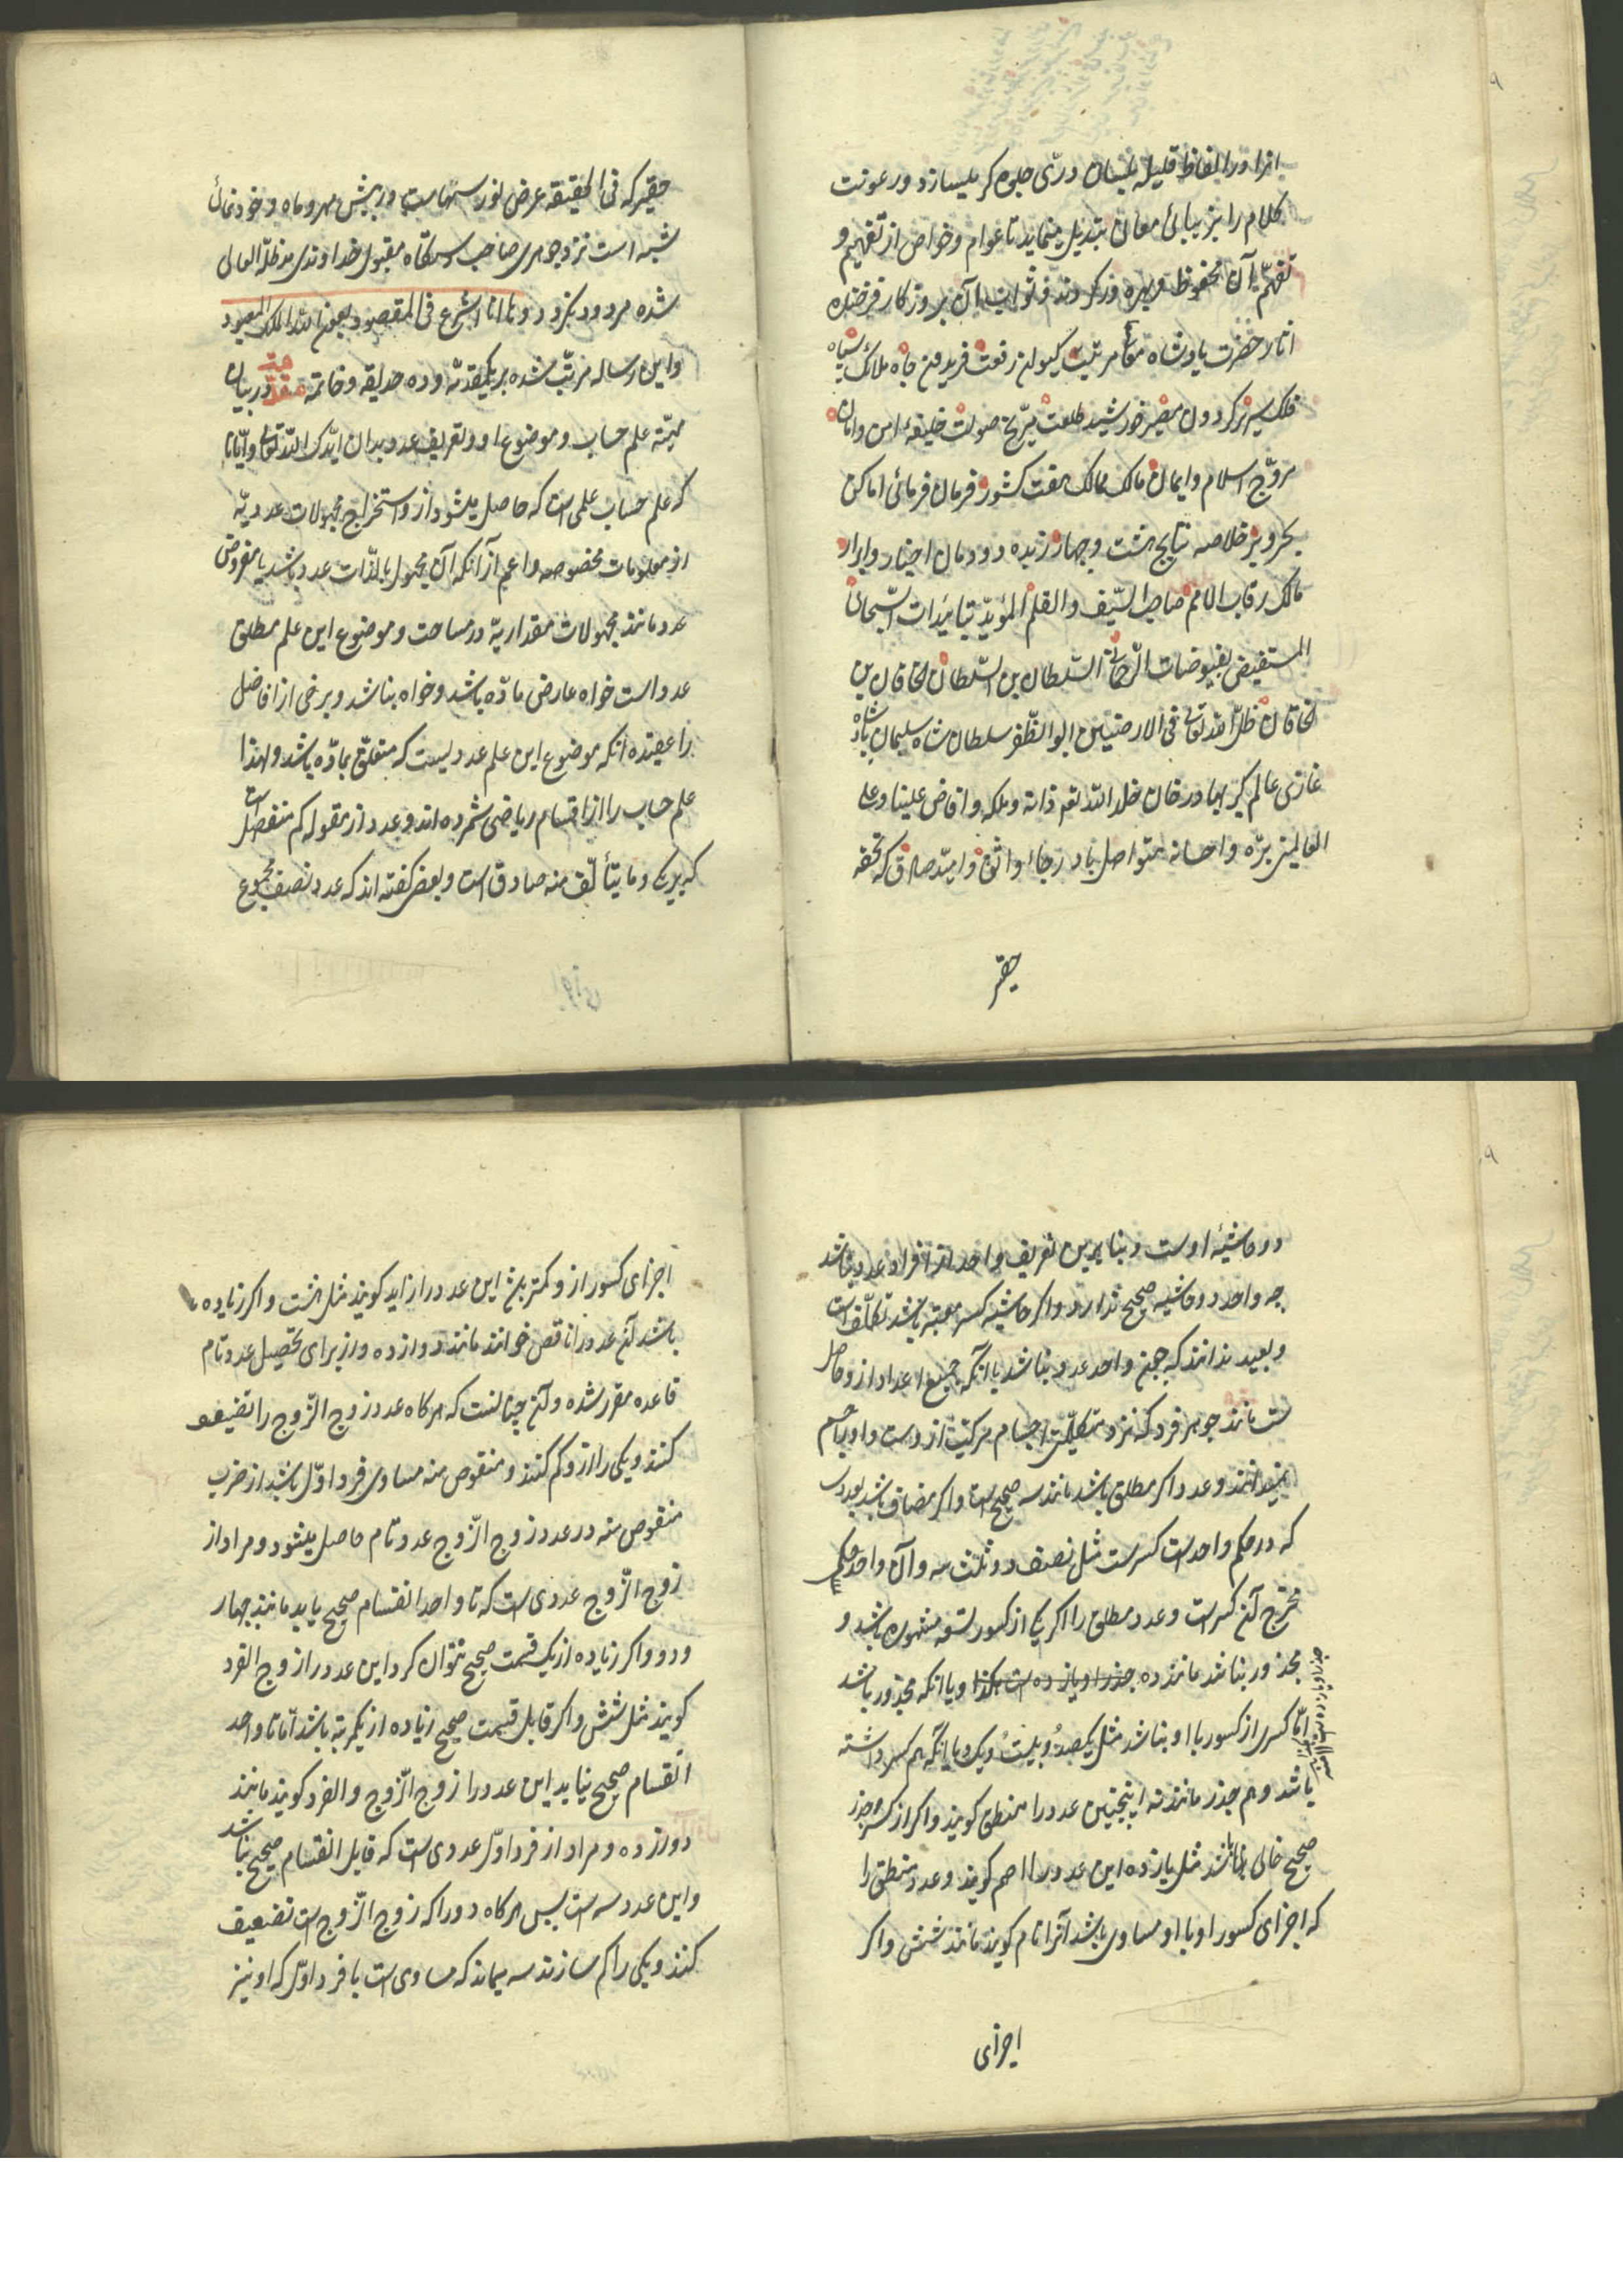 انرا در الفاظ قلیله بلسان دری جلوه گر میسازد و رعونت
کلام را بزیبائی معانی تبدیل مینماید تا عوام و خواص از تفهیم و
تفهّم آن محفوظ و بهره ور گردند و ثواب آن بروزگار فرخنده
اثار حضرت پادشاه مرتبت کیوان رفعت فریدون جاه ملائک سپاه
فلک سریر گردون مصیر خورشید طلعت مریّخ صولت خلیفهٔ امن و امان
مروّج اسلام و ایمان مالک ممالک هفت کشور فرمان فرمائی اماکن
بحر و بر خلاصه نتایج هشت و چهار زبده دودمان اخیار و ابرار
مالک رقاب الامم صاحب السّیف و القلم المؤیّد بتائیدات السّبحان
المستفیض بفیوضات الرّحمانی السّلطان بن السّلطان الخاقان بن
الخاقان ظلّ الله تعالی فی الارضیین ابوالظّفر سلطان شاه سلیمان پادشاه
غازی عالم گیر بهادر خان خلد الله تعم ذاته و ملکه و افاض علینا و علی
العالمین برّه و احسانه متواصل باد رجاء واثق و امید صادق که تحفه
حقیر
حقیر که فی الحقیقة عرض نور سهاست در پیش مهر و ماه و خود نمائی
شبه است نزد جوهری صاحب دستگاه مقبول خداوندی مدظلّه العالی
شده مردود نگردد و ها انا اشرع فی المقصود بعون الله الملک المعبود
و این رساله مرتّب شده بر یکمقدمّه و ده حدیقه و خاتمه مقدمه در بیان
مهیّته علم حساب و موضوع او و تعریف عدد بدان ایّدک الله تعالی و ایّانا
که علم حساب علمی است که حاصل میشود از و استخراج مجهولات عددیّه
از معلومات مخصوصه و اعم از آنکه آن مجهول بالذّات عدد باشد یا مفروض
عدد مانند مجهولات مقداریّه در مساحت و موضوع این علم مطلق
عدد است خواه عارض مادّه باشد و خواه نباشد و برخی از افاضل
را عقیده انکه موضوع این علم عددیست که متعلّق بمادّه باشد و لهذا
علم حساب را از اقسام ریاضی شمرده اند و عدد از مقوله کم منفصل است
که بر یک و ما یتألّف منه صادق است و بعض گفته اند که عدد نصف مجموع
دو حاشیهٔ اوست و بنابرین تعریف واحد از افراد عدد نباشد
چه واحد دو حاشیه صحیح ندارد و اگر حاشیه کسر معتبر باشد تکلّف است
و بعید ندانند که چنین واحد عدد نباشد با آنکه جمیع اعداد ازو حاصل
ست مانند جوهر فرد که نزد متکلّمین اجسام مرکب ازوست و او را جسم
نمیدانند و عدد اگر مطلق باشد مانند سه صحیح است و اگر مضاف باشد بعددی
که در حکم واحد است کسرست مثل نصف دو و ثلث سه و آن واحد حکمی
مخرج آن کسرست و عدد مطلق را اگر یکی از کسور تسعه مشهوره باشد و
مجذور نباشد مانند ده جذر او یازده ست هکذا و یا انکه مجذور باشد
امّا کسری از کسور با او نباشد مثل یکصد و بیست و یک و یا انکه هم کسر داشته
باشد و هم جذر مانند نه اینچنین عدد را منطق گویند و اگر از کسر و جذر
صحیح خالی باشد مثل یازده این عدد را اصم گویند و عدد منطق را
که اجزای کسور او با او مساوی باشد آنرا تام گویند مانند شش و اگر
اجزای
اجزای کسور از و کمتر بود این عدد را زاید گویند مثل هشت و اگر زیاده
باشد آن عدد را ناقص خوانند مانند دوازده و از برای تحصیل عدد تام
قاعده مقرر شده و آن چنانست که هرگاه عدد زوج الزّوج را تضیعف
کنند و یکی را ازو کم کنند و منقوص منه مساوی فرد اوّل باشد از ضرب
منقوص منه در عدد زوج الزّوج عدد تام حاصل میشود و مراد از
زوج الزّوج عددی ست که تا واحد انقسام صحیح یابد مانند چهار
و دو و اگر زیاده از یک قسمت صحیح نتوان کرد این عدد را زوج الفرد
گویند مثل شش و اگر قابل قسمت صحیح زیاده از یکمرتبه باشد امّا تا واحد
انقسام صحیح نیابد این عدد را زوج الزّوج و الفرد گویند مانند
دوازده و مراد از فرد اوّل عددی ست که قابل انقسام صحیح نباشد
و این عدد سه است پس هرگاه دو را که زوج الزّوج است تضعیف
کنند و یکی را کم سازند سه میماند که مساوی ست با فرد اوّل که او نیز